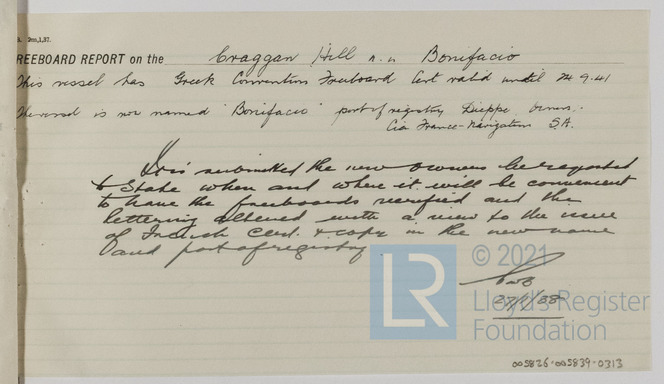 REEBOARD REPORT on the Craggan Hill n.n Bonifacio
This vessel has Greek Convention Freeboard Cert valid until 24.9.41
The vessel is now named "Bonifacio" port of registry Dieppe Owners:-
Cia France-Navigation S.A.
It is submitted the new owners be requested
to state when and where it will be convenient
to have the freeboards verified and the
lettering altered with a view to the issue
of French Cert. & copy in the new name
and port of registry
© 2021
LR
Lloyd's Register
Foundation
005826-005839-0313